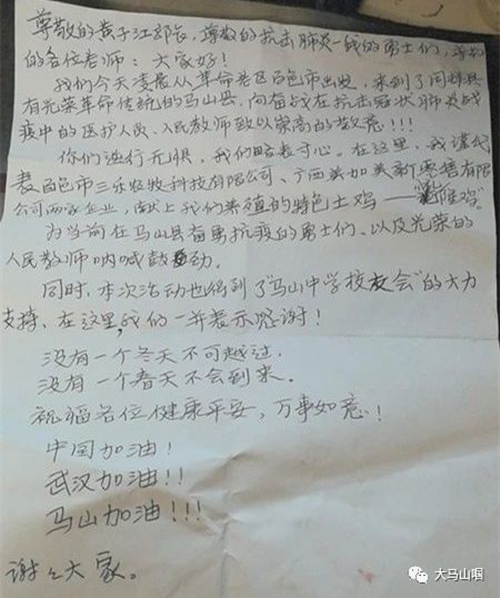 尊敬的黄子江部长，尊敬的抗击肺炎一线的勇士们，尊敬
的各位老师：大家好！
我们今天凌晨从革命老区百色市出发，来到了同样具
有光荣革命传统的马山县，向奋战在抗击冠状肺炎战
疫中的医护人员、人民教师致以崇高的敬意！！！
你们逆行无惧，我们略表寸心。在这里，我谨代
表百色市三乐农牧科技有限公司、广西美加美新零售有限
公司两家企业，献上我们养殖的特色土鸡——
为当前在马山县奋勇抗疫的勇士们、以及光荣的
人民教师呐喊鼓动。
同时，本次活动也得到了“马山中学校友会”的大力
支持，在这里，我们一并表示感谢！
没有一个冬天不可越过，
没有一个春天不会到来。
祝福各位健康平安，万事如意！
中国加油！
武汉加油！！
马山加油！！！
谢々大家。
大马山唱